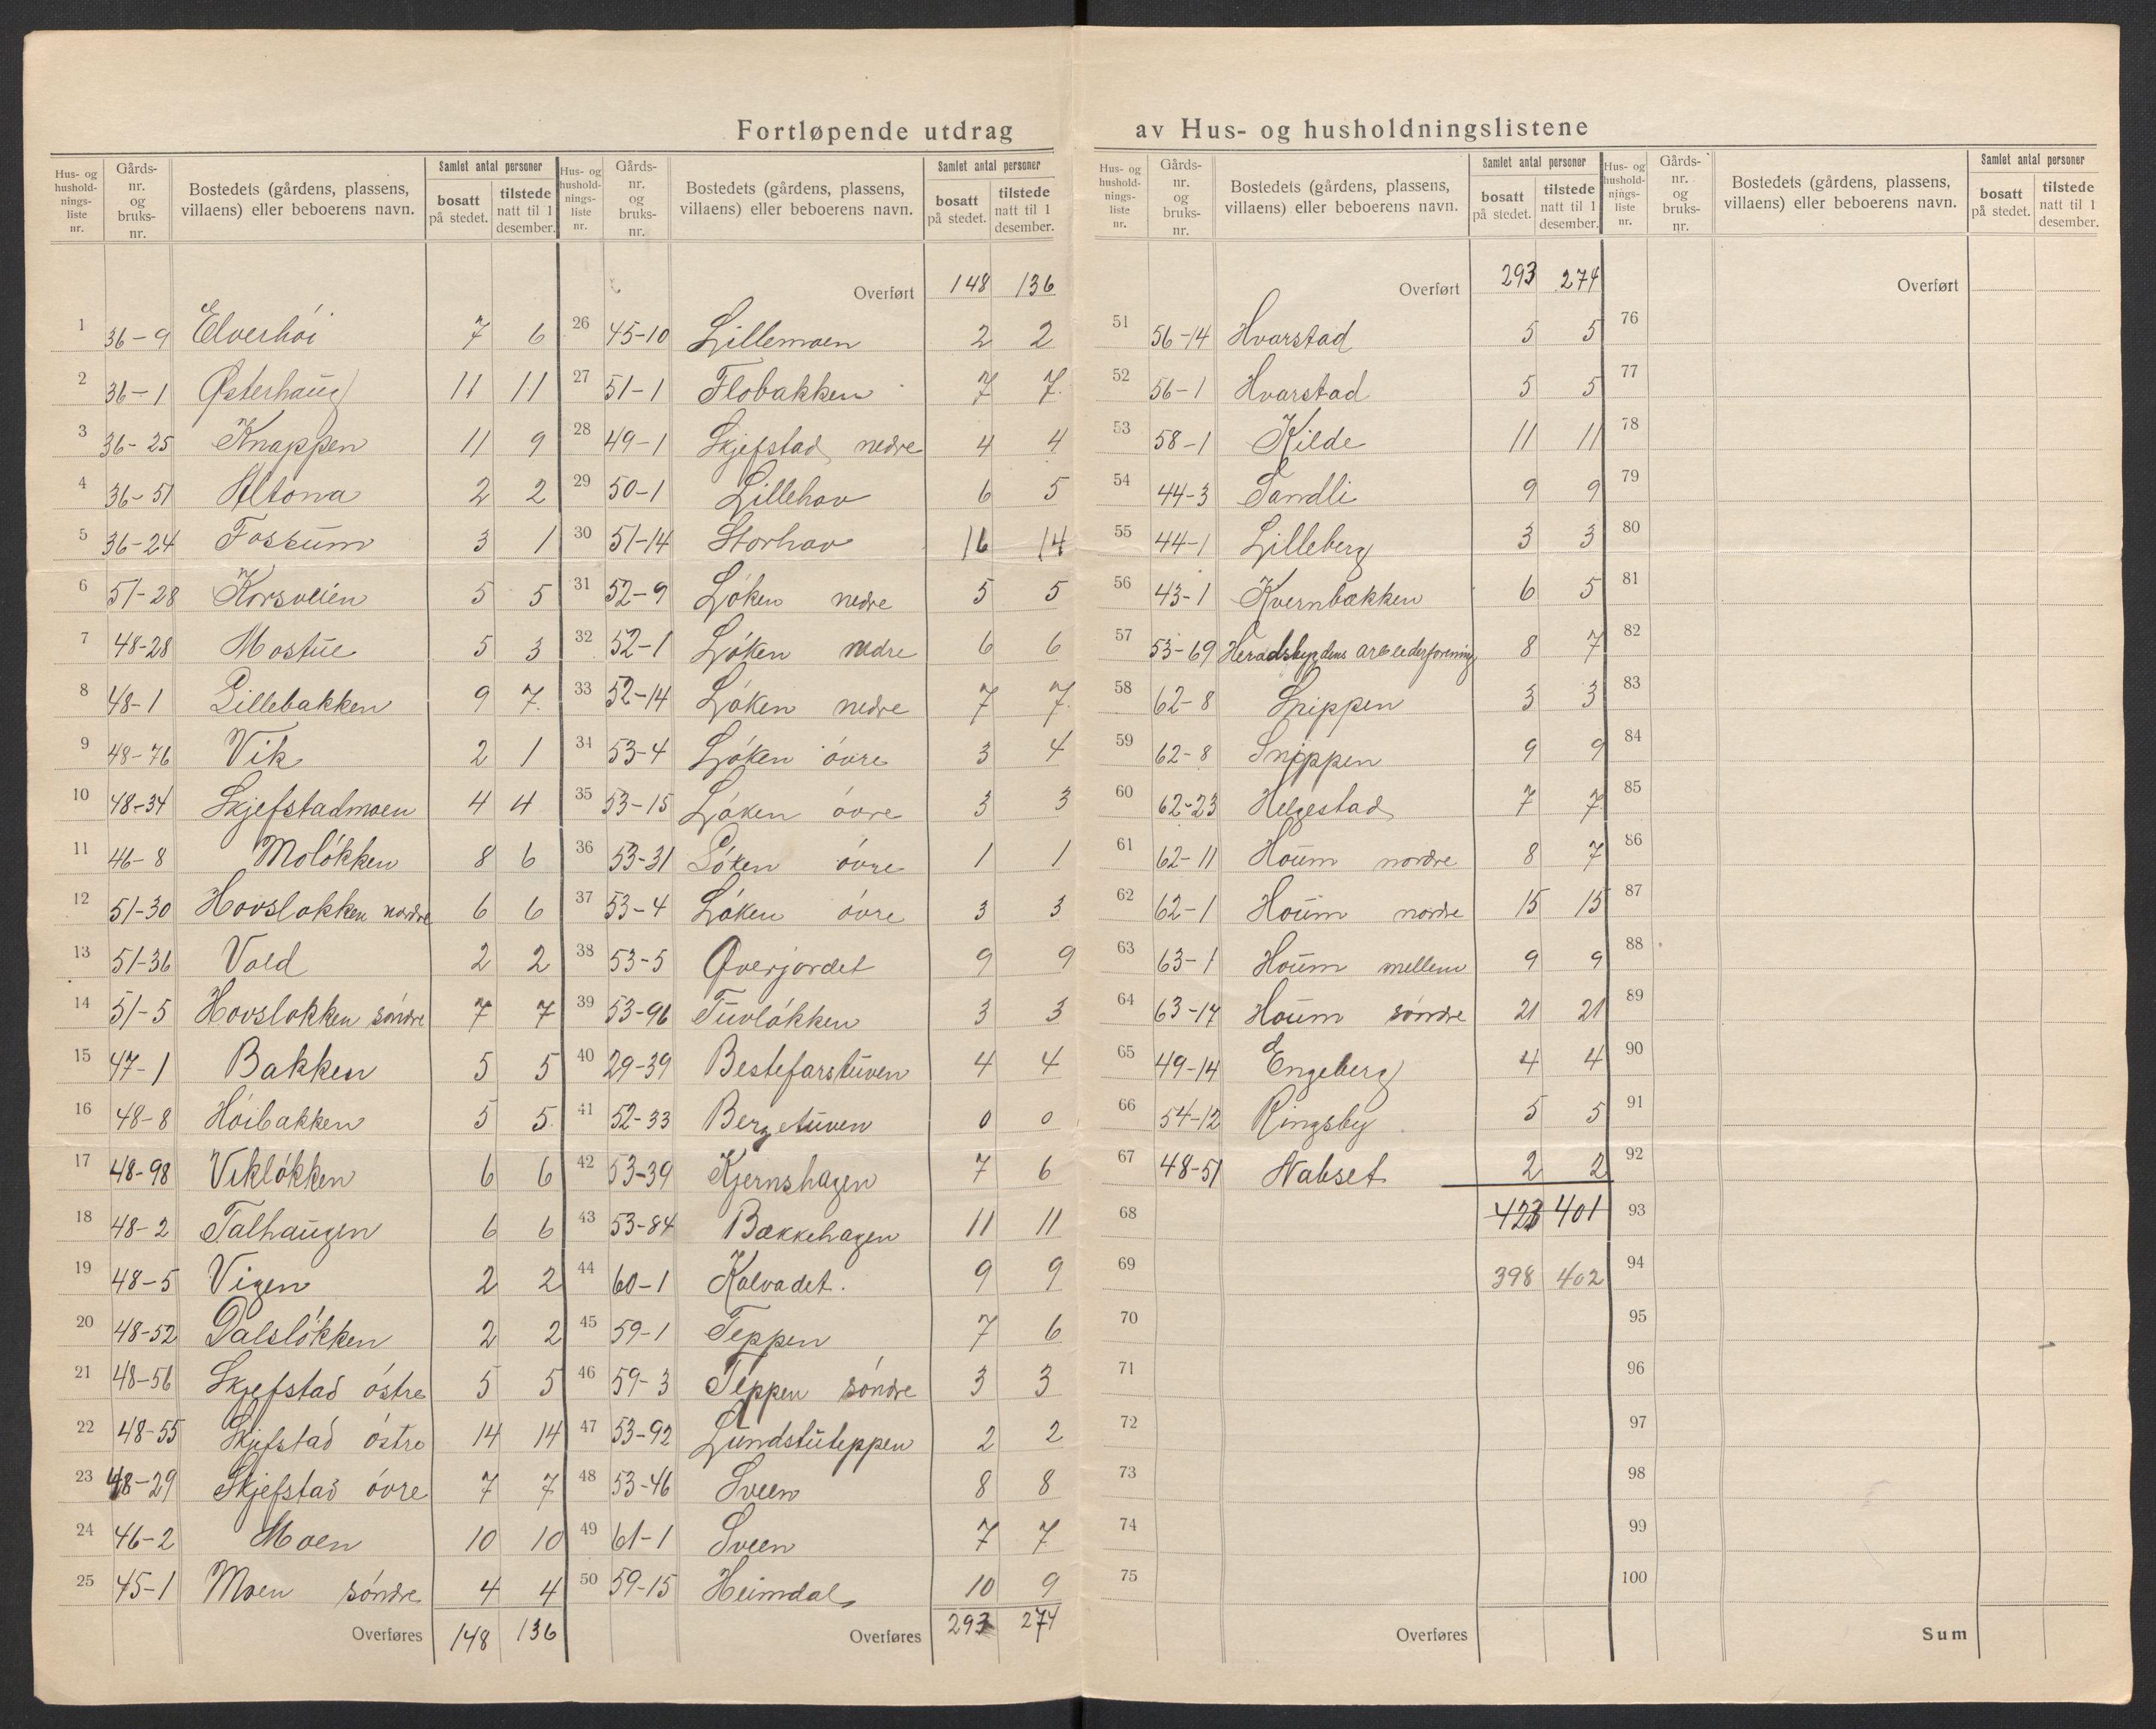 Fortløpende utdrag av Hus- og husholdningslistene
Hus- og hushold-nings-liste nr. | Gårds-nr. og bruks-nr. | Bostedets (gårdens, plassens, villaens) eller beboerens navn. | Samlet antal personer bosatt på stedet. | tilstede natt til 1 desember.
1 36-9 Elverhói 7 6
2 36-1 Østerhaug 11 11
3 36-25 Knappen 11 9
4 36-51 Altona 2 2
5 36-24 Fossum 3 1
6 51-28 Korsveien 5 5
7 48-28 Mostue 5 3
8 48-1 Lillebakken 9 7
9 48-76 Vik 2 1
10 48-34 Skjefstadmoen 4 4
11 46-8 Molókken 8 6
12 51-30 Hovslokken nordre 6 6
13 51-36 Vold 2 2
14 51-5 Hovslokken sóndre 7 7
15 47-1 Bakken 5 5
16 48-8 Hóibakken 5 5
17 48-98 Viklókken 6 6
18 48-2 Talhaugen 6 6
19 48-5 Vigen 2 2
20 48-52 Dalslókken 2 2
21 48-56 Skjefstad óstre 5 5
22 48-55 Skjefstad óstre 14 14
23 48-29 Skjefstad óvre 7 7
24 46-2 Moen 10 10
25 45-1 Moen sóndre 4 4
Overføres 148 136
Hus- og hushold-nings-liste nr. | Gårds-nr. og bruks-nr. | Bostedets (gårdens, plassens, villaens) eller beboerens navn. | Samlet antal personer bosatt på stedet. | tilstede natt til 1 desember.
Overført 148 136
26 45-10 Lillemoen 2 2
27 51-1 Flobakken 7 7
28 49-1 Skjefstad nedre 4 4
29 50-1 Lillehov 6 5
30 51-14 Storhov 16 14
31 52-9 Lóken nedre 5 5
32 52-1 Lóken nedre 6 6
33 52-14 Lóken nedre 7 7
34 53-4 Lóken óvre 3 4
35 53-15 Lóken óvre 3 3
36 53-31 Lóken óvre 1 1
37 53-4 Lóken óvre 3 3
38 53-5 Øverjordet 9 9
39 53-96 Tuvlókken 3 3
40 29-39 Bestefarstuven 4 4
41 52-33 Bergetuven 0 0
42 53-39 Kjernshagen 7 6
43 53-84 Bakkehagen 11 11
44 60-1 Kalvadet. 9 9
45 59-1 Teppen 7 6
46 59-3 Teppen sóndre 3 3
47 53-92 Lundstuteppen 2 2
48 53-46 Sveen 8 8
49 61-1 Sveen 7 7
50 59-15 Heimdal 10 9
Overføres 293 274
Hus- og hushold-nings-liste nr. | Gårds-nr. og bruks-nr. | Bostedets (gårdens, plassens, villaens) eller beboerens navn. | Samlet antal personer bosatt på stedet. | tilstede natt til 1 desember.
Overført 293 274
51 56-14 Hvarstad 5 5
52 56-1 Hvarstad 5 5
53 58-1 Kilde 11 11
54 44-3 Sandli 9 9
55 44-1 Lilleberg 3 3
56 43-1 Kvernbakken 6 5
57 53-69 Heradsbygdens arbeiderforening 8 7
58 62-8 Snippen 3 3
59 62-8 Snippen 9 9
60 62-23 Helgestad 7 7
61 62-11 Houm nordre 8 7
62 62-1 Houm nordre 15 15
63 63-1 Houm mellem 9 9
64 63-14 Houm sóndre 21 21
65 49-14 Engeberg 4 4
66 54-12 Ringsby 5 5
67 48-51 Nabset 2 2
68 423 401
69 398 402
70
71
72
73
74
75
Overføres
Hus- og hushold-nings-liste nr. | Gårds-nr. og bruks-nr. | Bostedets (gårdens, plassens, villaens) eller beboerens navn. | Samlet antal personer bosatt på stedet. | tilstede natt til 1 desember.
Overført
76
77
78
79
80
81
82
83
84
85
86
87
88
89
90
91
92
93
94
95
96
97
98
99
100
Sum